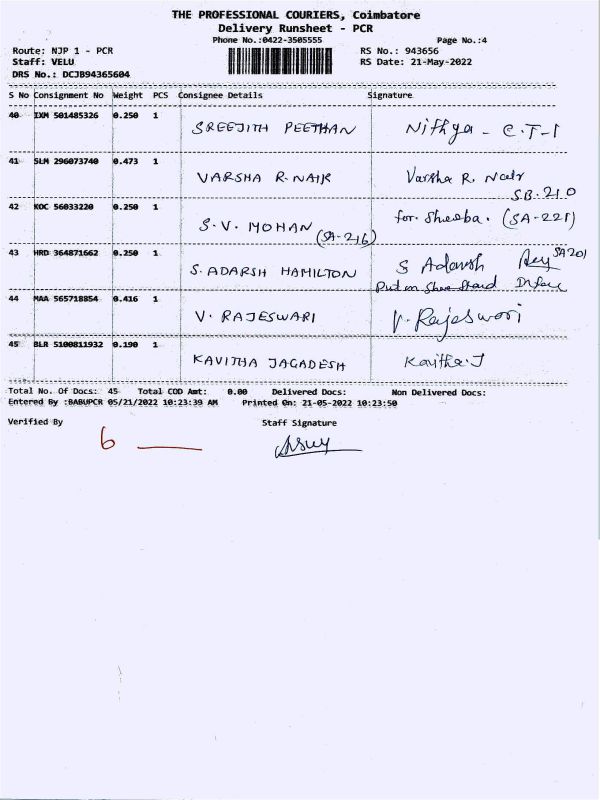 THE PROFESSIONAL COURIERS, Coimbatore
Delivery Runsheet - PCR
Phone No.:0422-3505555 Page No.:4
Route: NJP 1 - PCR RS No.: 943656
Staff: VELU RS Date: 21-May-2022
DRS No.: DCJB94365604
S No Consignment No Weight PCS Consignee Details Signature
40 IXM 501485326 0.250 1 SREEJITH PEETHAN Nithya - C.T-1
41 SLM 296073740 0.473 1 VARSHA R.NAIR Varsha R. Nair
SB.210
42 KOC 56033220 0.250 1 S.V. MOHAN (SA-216) for. Sheeba. (SA-221)
43 HRD 364871662 0.250 1 S.ADARSH HAMILTON S Adarsh SA201
Put on Shoe Stand
44 MAA 565718854 0.416 1 V. RAJESWARI V. Rajeswari
45 BLR 5100811932 0.190 1 KAVITHA JAGADESH Kavitha.J
Total No. Of Docs: 45 Total COD Amt: 0.00 Delivered Docs: Non Delivered Docs:
Entered By :BABUPCR 05/21/2022 10:23:39 AM Printed On: 21-05-2022 10:23:50
Verified By Staff Signature
6